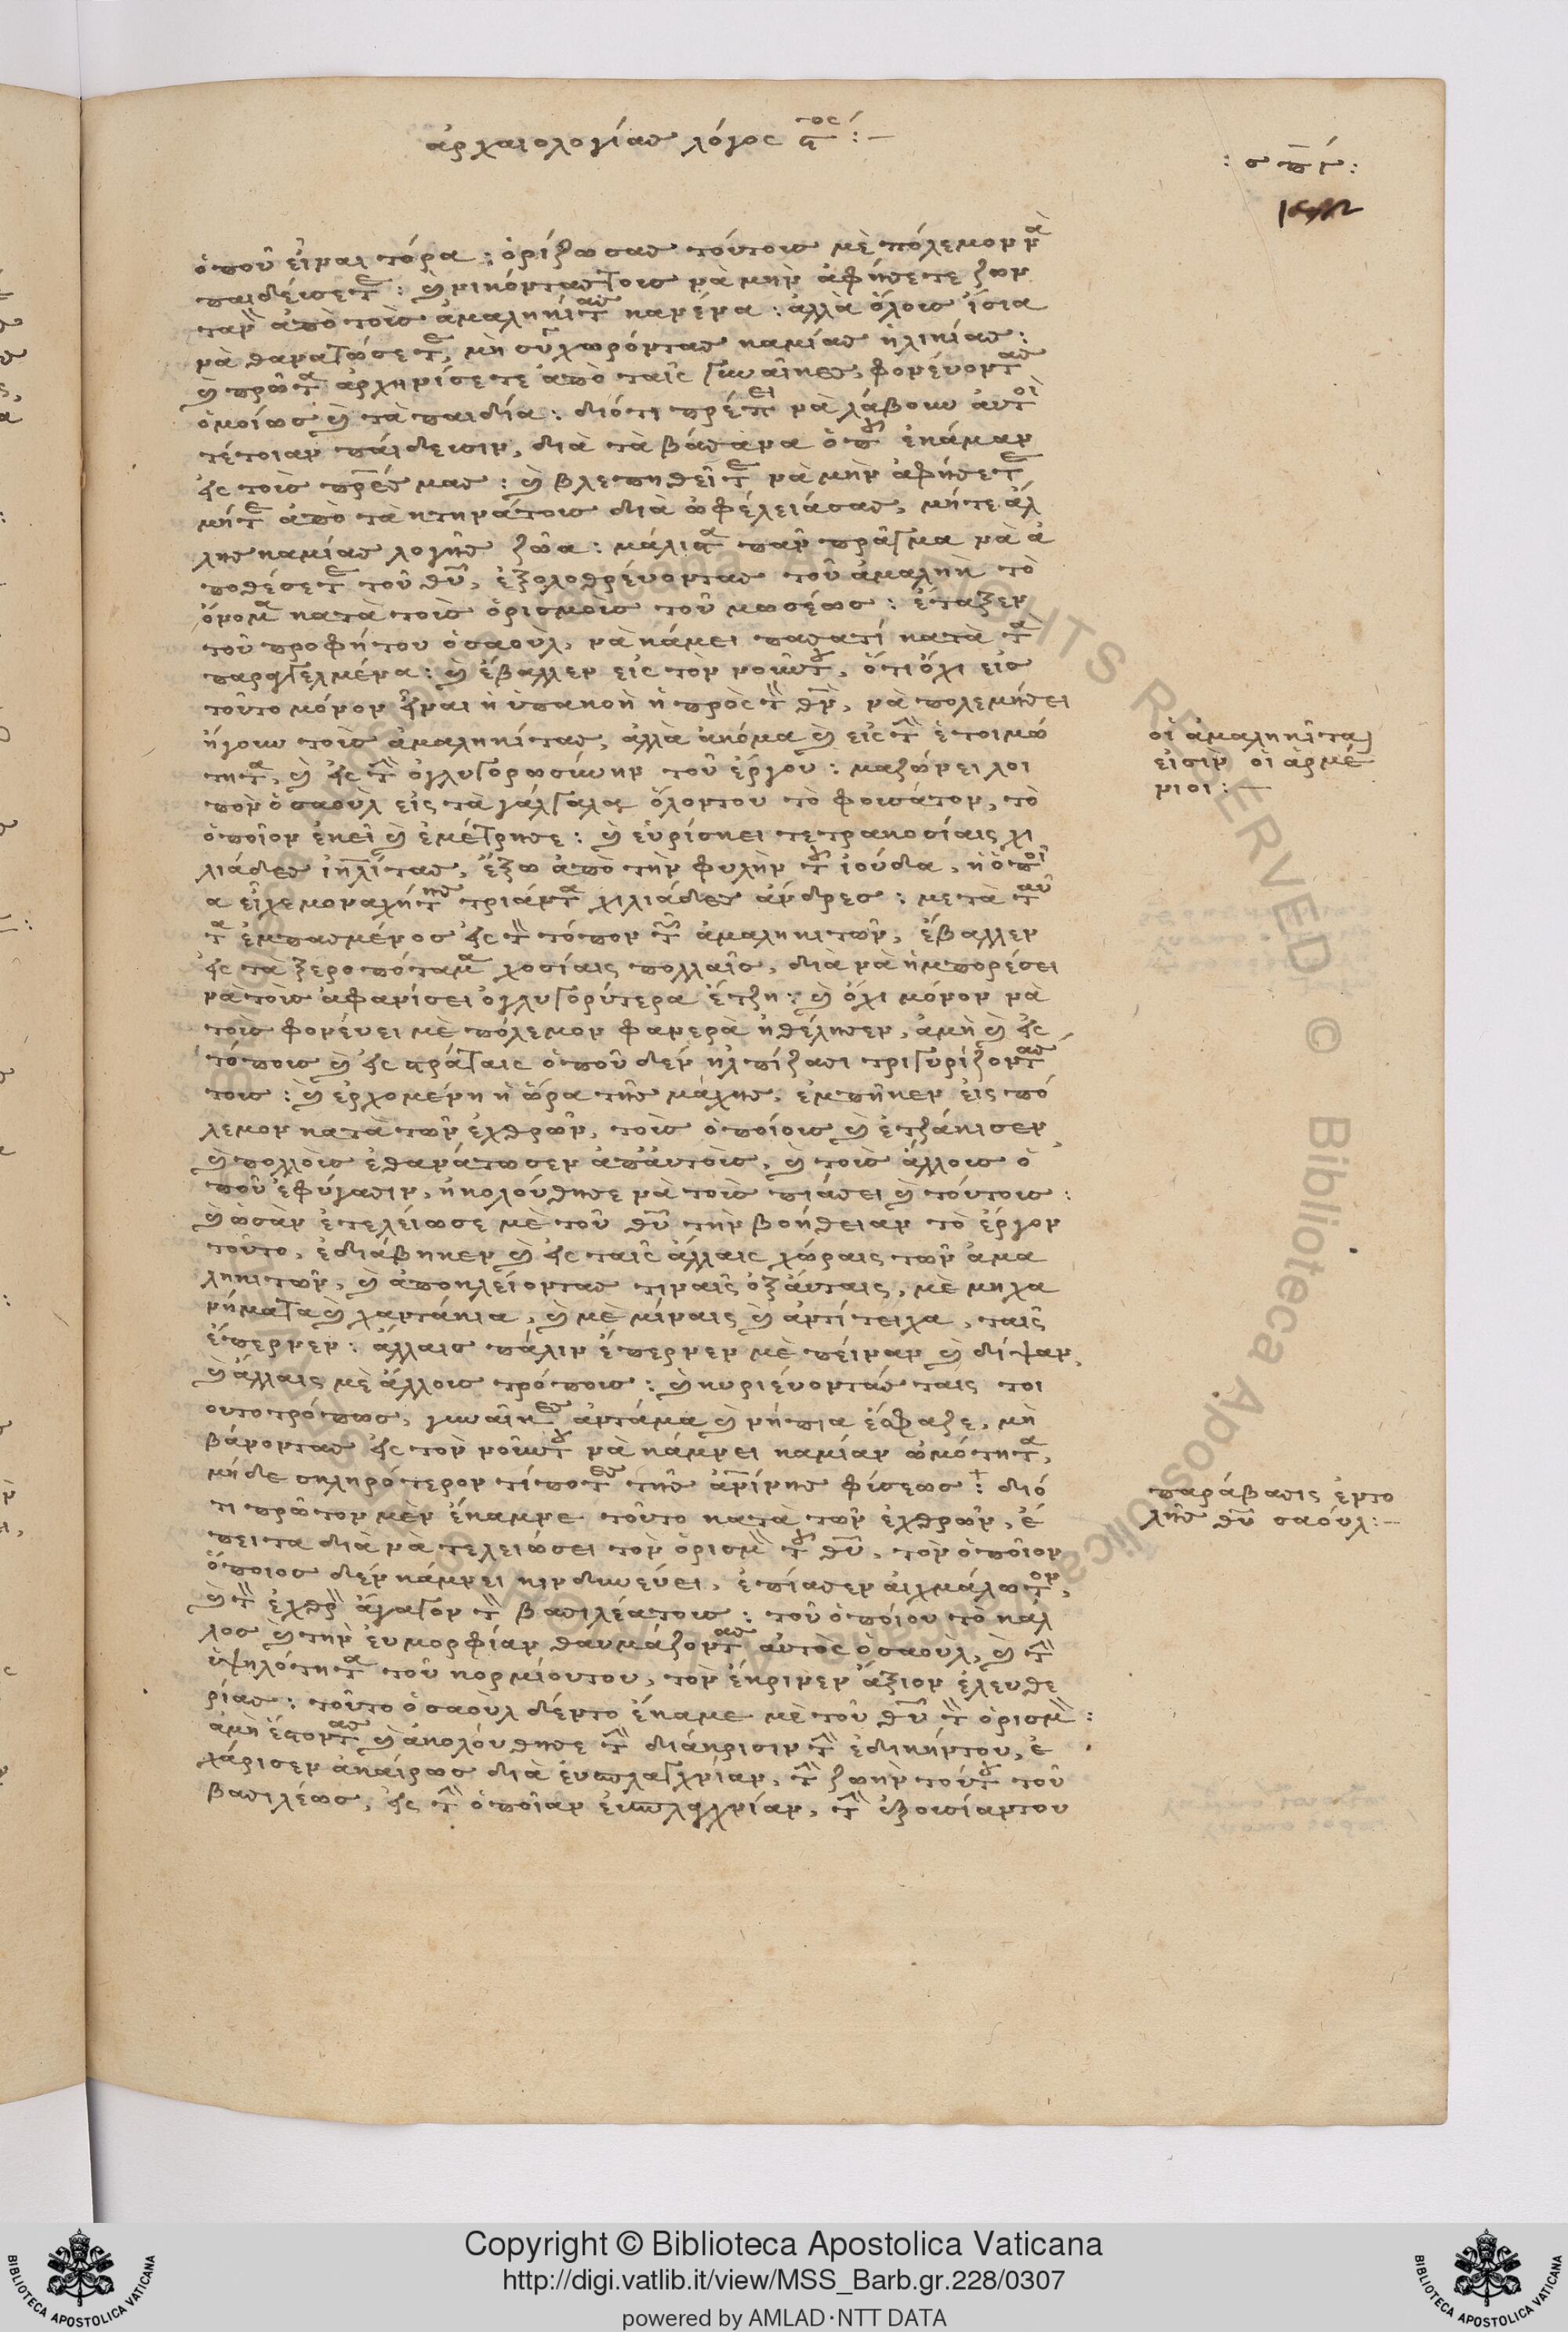 ἀρχαιολογίας λόγος ϛ^τος :—
: σπγ :
ὁποῦ εἶναι τόρα : ὁρίζω σας τούτοις μὲ πόλεμον νὰ
παιδεύσετε : ϗ νικόντας τοις νὰ μὴν ἀφήσετε ζων
τανὸν ἀπὸ τοὶς ἀμαληκίτας κανένα : ἀλλὰ ὅλοις ἴσια
νὰ θανατώσετε, μὴ συγχωρόντας καμίας ἡλικίας :
ϗ πρῶτα ἀρχηνίσετε ἀπὸ ταῖς γυναῖκες, φονεύοντας
ὁμοίως ϗ τὰ παιδία : διότι πρέπει νὰ λάβουν αὐτοὶ
τέτοιαν παίδευσιν, διὰ τὰ βάσανα ὁποῦ ἐκάμαν
εἰς τοὶς προπάτορες μας : ϗ βλεπηθεῖτε νὰ μὴν ἀφήσετε
μήτε ἀπὸ τὰ κτηνάτοις διὰ ὠφέλειάσας, μήτε ἀλ
λης καμίας λογῆς ζῶα : μάλιστα πᾶν πρᾶγμα νὰ ἀ
ποθέσετε τοῦ θῦ, ἐξολοθρεύοντας τοῦ ἀμαλὴκ τὸ
ὄνομα κατὰ τοὶς ὁρισμοὶς τοῦ μωσέως : ἔταξεν
τοῦ προφήτου ὁ σαοὺλ, νὰ κάμει πασατί κατὰ τὰ
παραγγελμένα : ϗ ἔβαλλεν εἰς τὸν νοῦντου, ὅτι ὄχι εἰς
τοῦτο μόνον εἶναι ἡ ὑπακοὴ ἡ πρὸς τὸν θν, νὰ πολεμήσει
ἤγουν τοὶς ἀμαληκίτας, ἀλλὰ ἀκόμα ϗ εἰς τὴν ἑτοιμό
τητα, ϗ εἰς τὴν ὀγλυγοροσύνην τοῦ ἔργου : μαζώνει λοι
πὸν ὁ σαοὺλ εἰς τὰ γάλγαλα ὅλοντου τὸ φουσάτον, τὸ
ὁποῖον ἐκεῖ ϗ ἐμέτρησε : ϗ εὑρίσκει τετρακοσίαις χι
λιάδες ἰηλίτας, ἔξω ἀπὸ τὴν φυλὴν τοῦ ἰούδα, ἡ ὁποῖ
α εἶχε μοναχήτης τριάντα χιλιάδες ἄνδρες : μετὰ ταῦ
τα ἐμπασμένος εἰς τὸν τόπον τῶν ἀμαληκιτῶν, ἔβαλλεν
εἰς τὰ ξεροπόταμα χοσίαις πολλαῖς, διὰ νὰ ἠμπορέσει
νὰ τοὶς ἀφανίσει ὀγλυγορύτερα ἔτζη : ϗ ὄχι μόνον νὰ
τοὶς φονεύει μὲ πόλεμον φανερὰ ἠθέλησεν, ἀμὴ ϗ εἰς
τόποις ϗ εἰς στράταις ὁποῦ δὲν ἠλπίζασι τριγυρίζοντας
τοις : ϗ ἐρχομένη ἡ ὥρα τῆς μάχης, ἐμπῆκεν εἰς πό
λεμον κατὰ τῶν ἐχθρῶν, τοὶς ὁποίοις ϗ ἐτζάκισεν,
ϗ πολλοὶς ἐθανάτωσεν ἀπαὐτοὶς, ϗ τοὶς ἄλλοις ὁ
ποῦ ἐφύγασιν, ἠκολούθησε νὰ τοὶς πιάσει ϗ τούτοις :
ϗ ὡσὰν ἐτελείωσε μὲ τοῦ θῦ τὴν βοήθειαν τὸ ἔργον
τοῦτο, ἐδιάβηκεν ϗ εἰς ταῖς ἄλλαις χώραις τῶν ἀμα
ληκιτῶν, ϗ ἀποκλείοντας τιναῖς ὀξαύταις, μὲ μηχα
νήματα ϗ χαντάκια, ϗ μὲ μίναις ϗ ἀντίτειχα, ταῖς
ἔπερνεν : ἄλλαις πάλιν ἔπερνεν μὲ πείναν ϗ δίψαν,
ϗ ἄλλαις μὲ ἄλλοις τρόποις : ϗ κυριεύοντάς ταις τοι
ουτοτρόπως, γυναῖκες ἀντάμα ϗ νήπια ἔσφαζε, μὴ
βάνοντας εἰς τὸν νοῦντου νὰ κάμνει καμίαν ὠμότητα,
μήδε σκληρότερον τίποτες τῆς ἀνθρωπίνης φύσεως : διό
τι πρῶτον μὲν ἔκαμνε τοῦτο κατὰ τῶν ἐχθρῶν, ἔ
πειτα διὰ νὰ τελειώσει τὸν ὁρισμὸν τοῦ θῦ, τὸν ὁποῖον
ὅποιος δὲν κάμνει κινδυνεύει, ἐπίασεν αἰχμάλωτον,
ϗ τὸν ἐχθρὸν ἄγαγον τὸν βασιλέατοις : τοῦ ὁποίου τὸ κάλ
λος ϗ τὴν εὐμορφίαν θαυμάζοντας αὐτὸς ὁ σαοὺλ, ϗ τὴν
ὑψηλότητα τοῦ κορμίουτου, τὸν ἔκρινεν ἄξιον ἐλευθε
ρίας : τοῦτο ὁ σαοὺλ δέντο ἔκαμε μὲ τοῦ θῦ τὸν ὁρισμὸν :
ἀμὴ ἔστοντας ϗ ἀκολούθησε τὴν διάκρισιν τὴν ἐδικήντου, ἐ
χάρισεν ἀκαίρως διὰ εὐσπλαγχνίαν, τὴν ζωὴν τούτου τοῦ
βασιλέως, εἰς τὴν ὁποῖαν εὐσπλαγχνίαν, τὴν ἐξουσίαντου
οἱ ἀμαληκῖται
εἰσὶν οἱ ἀρμέ
νιοι :—
παράβασις ἐντο
λῆς θῦ σαούλ :—
Copyright © Biblioteca Apostolica Vaticana
http://digi.vatlib.it/view/MSS_Barb.gr.228/0307
powered by AMLAD·NTT DATA